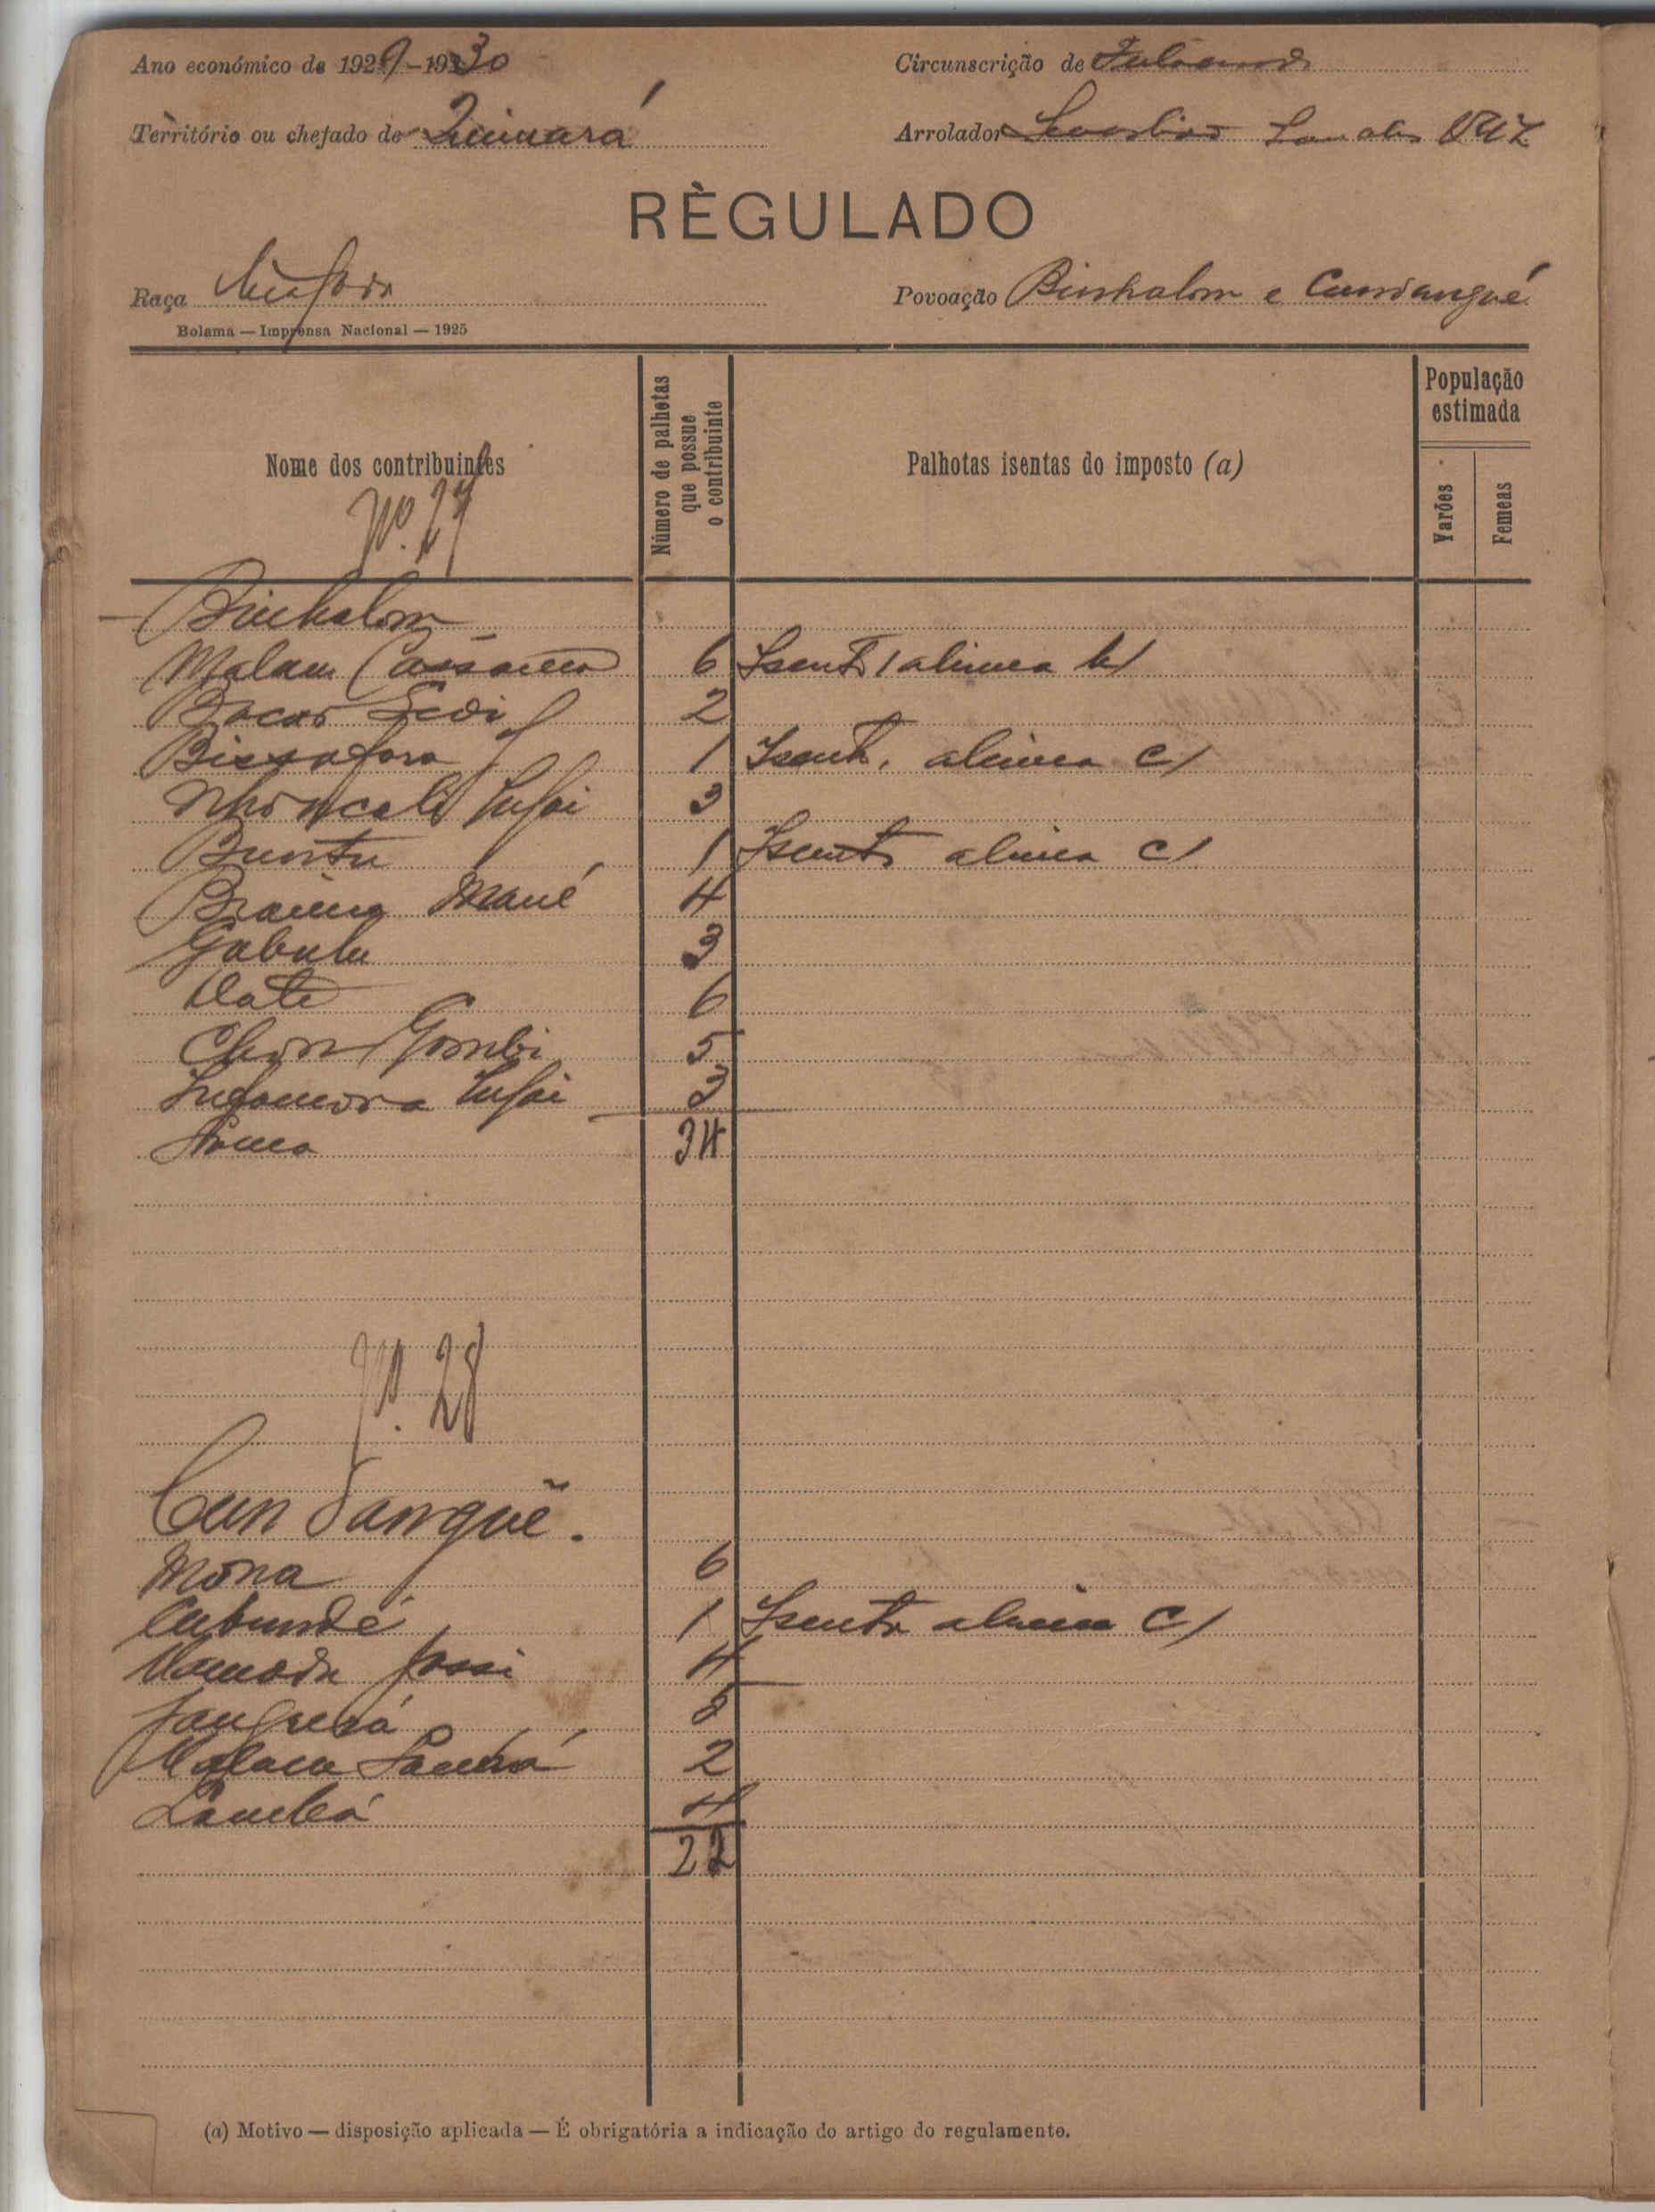 Ano económico de 1929-1930
Circunscrição de
Território ou chefado de Quinará
Arrolador
RÈGULADO
Raça
Povoação Binhalom e Cundangué
Bolama — Imprensa Nacional — 1925
Nome dos contribuintes
Número de palhotas que possue o contribuinte
Palhotas isentas do imposto (a)
População estimada
Varões
Femeas
Nº. 27
Binhalom
Malam 6 Isento alinea b)
Bacar Sedi 2
Bissafora 1 Isento, alinea c)
Infai 3
Buntu 1 Isento alinea c)
Braima Mané 4
Gabulu 3
6
Gombi 5
Infai 3
Soma 34
Nº. 28
Cundanguê.
Mona 6
Cubundé 1 Isento alinea c)
Mamadu 4
5
Malam Sambá 2
Lambá 4
22
(a) Motivo — disposição aplicada — É obrigatória a indicação do artigo do regulamento.